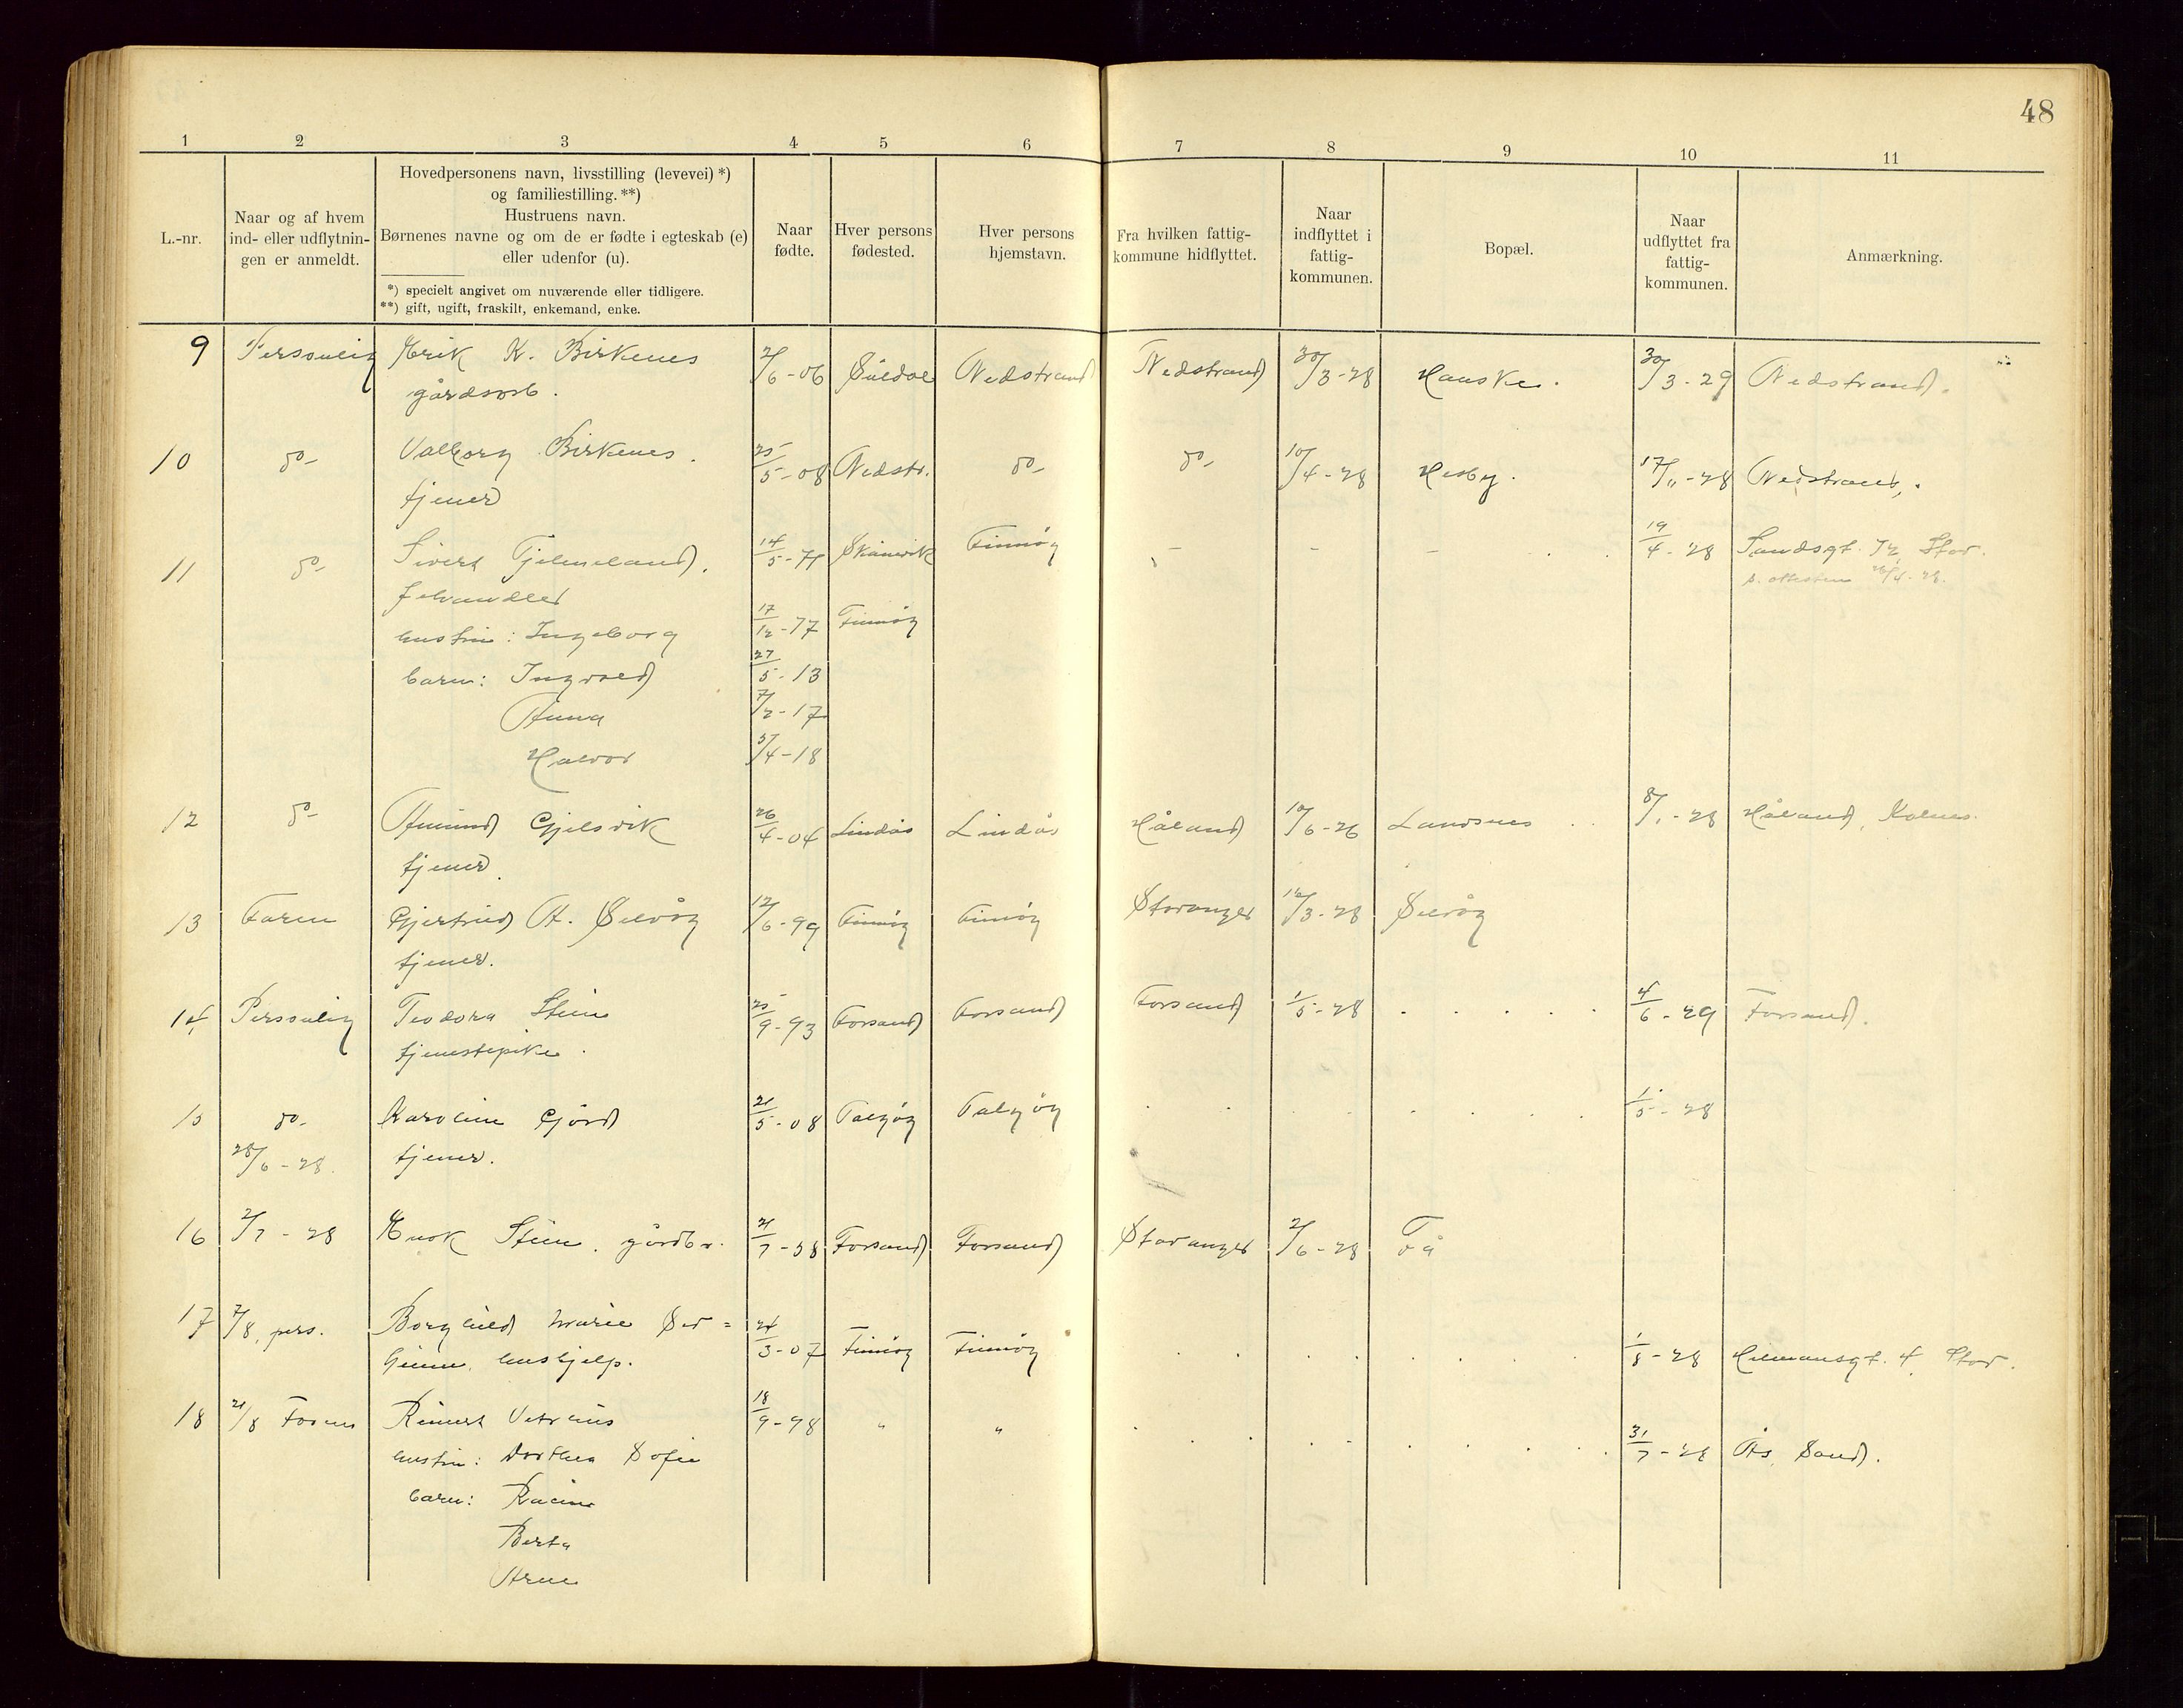 48
1 2 3 4 5 6 7 8 9 10 11
L.-nr.
Naar og af hvem
ind- eller udflytnin-
gen er anmeldt.
Hovedpersonens navn, livsstilling (levevei) *)
og familiestilling. **)
Hustruens navn.
Børnenes navne og om de er fødte i egteskab (e)
eller udenfor (u).
*) specielt angivet om nuværende eller tidligere.
**) gift, ugift, fraskilt, enkemand, enke.
Naar
fødte.
Hver persons
fødested.
Hver persons
hjemstavn.
Fra hvilken fattig-
kommune hidflyttet.
Naar
indflyttet i
fattig-
kommunen.
Bopæl.
Naar
udflyttet fra
fattig-
kommunen.
Anmærkning.
9 Personlig Erik K. Birkenes 2/6-06 Suldal Nedstrand Nedstrand 30/3-28 Hauske. 30/3-29 Nedstrand.
gårdsarb.
10 do- Valborg Birkenes. 25/5-08 Nedstr. do- do- 10/4-28 Hesby. 17/11-28 Nedstrand.
tjener
11 do- Sivert Tjelmeland. 14/5-71 Skånevik Finnøy - - - 19/4-28 Sandsgt. 72 Stav.
fehandler s. attesten 26/4-28.
hustru: Ingeborg 17/12-77 Finnøy
barn: Ingvald 27/5-13
Anna 7/2-17
Halvor 5/4-18
12 do- Amund Gjelsvik 26/4-04 Lindås Lindås Håland 10/6-26 Landsnes 8/1-28 Håland, Kolnes.
tjener.
13 Faren Gjertrud A. Selvåg 12/6-99 Finnøy Finnøy Stavanger 16/3-28 Selvåg
tjener.
14 Personlig Teodora Stene 25/9-93 Forsand Forsand Forsand 1/5-28 . . . . . 4/6-29 Forsand.
tjenestepike.
15 do- Karoline Gjord 21/5-08 Talgøy Talgøy . . . . . 1/5-28
28/6-28. tjener.
16 2/7-28 Enok Stene. gårdbr. 21/7-58 Forsand Forsand Stavanger 2/6-28 Få
17 7/8, pers. Borghild Marie Ser=
heim, hushjelp. 24/3-07 Finnøy Finnøy . . . . . 1/8-28 Hilmansgt. 4 Stav.
18 21/8 Faren Reinert Vetrhus 18/9-98 " " . . . . .
hustru: Dorthea Sofie 31/7-28 Ås, Sand.
barn: Rakine
Berta
Arne